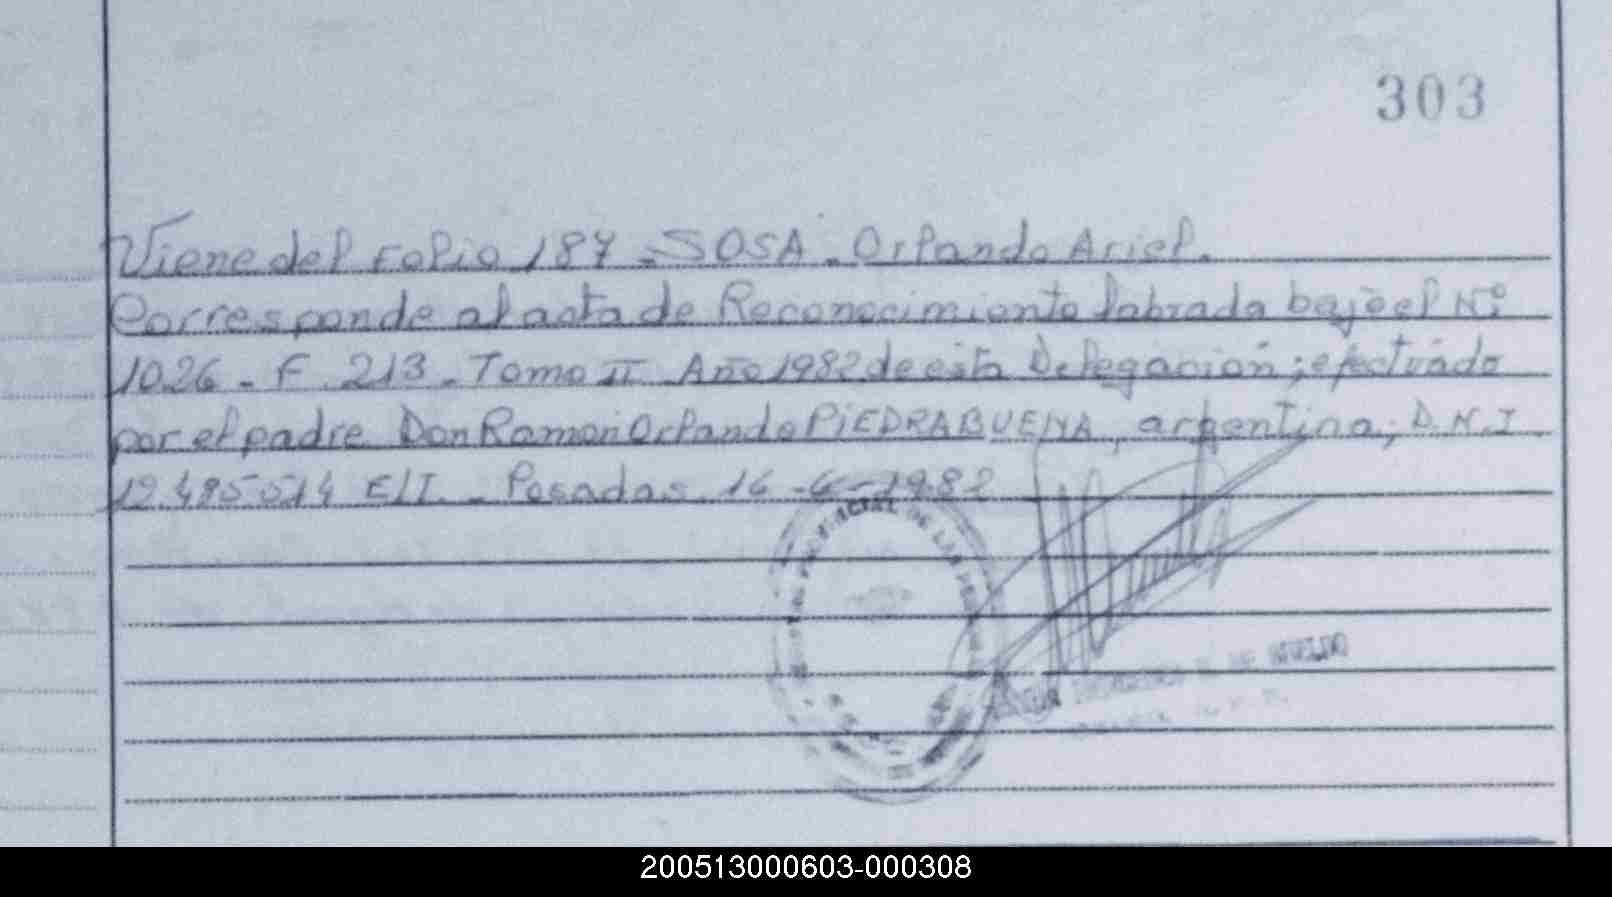 303
Viene del Folio 187 - SOSA - Orlando Ariel.
Corresponde al acta de Reconocimiento labrada bajo el Nº
1026 - F. 213 - Tomo II Año 1982 de esta Delegación; efectuado
por el padre Don Ramon Orlando PiEDRABUENA, argentino, D.N.I.
12.495.514 E/I. - Posadas 16 - 6 - 1982
PROVINCIAL DE LAS
200513000603-000308